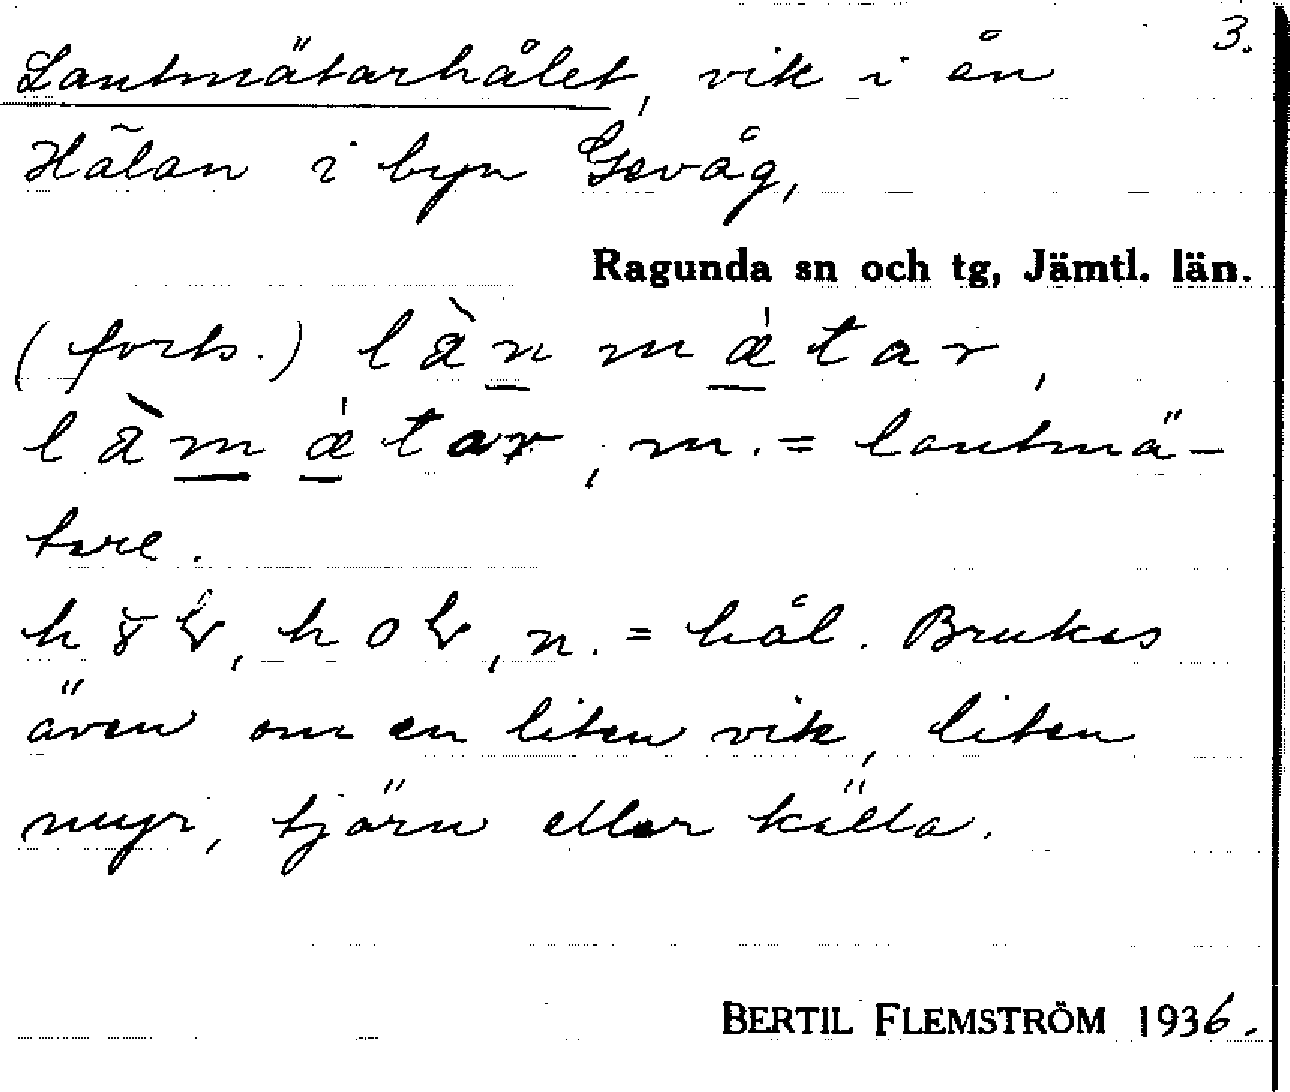 3.
Lantmätarhålet, vik i ån
Hälan i byn Gevåg,
Ragunda sn och tg, Jämtl. län.
(forts.) làn mǽtar,
làmǽtar, m. = lantmä-
tare.
n. = hål. Brukas
även om en liten vik, liten
myr, tjärn eller källa.
BERTIL FLEMSTRÖM 1936.